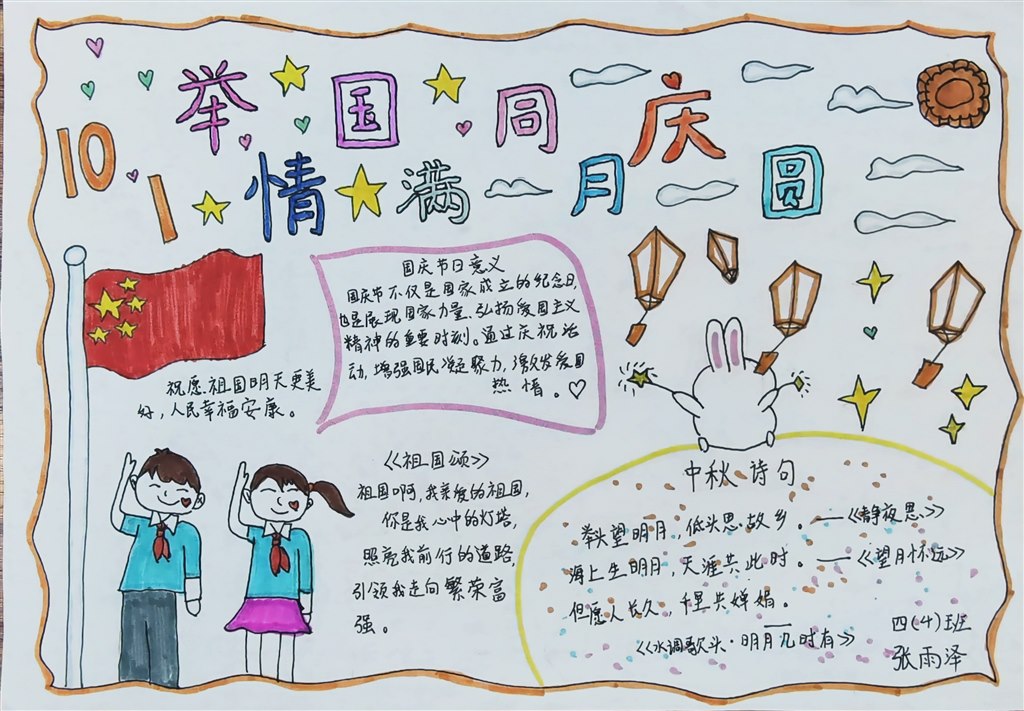 举国同庆
10 1
情满月圆
国庆节日意义
国庆节不仅是国家成立的纪念日,
也是展现国家力量、弘扬爱国主义
精神的重要时刻。通过庆祝活
动,增强国民凝聚力,激发爱国
热情。
祝愿祖国明天更美
好,人民幸福安康。
《祖国颂》
祖国啊,我亲爱的祖国,
你是我心中的灯塔,
照亮我前行的道路,
引领我走向繁荣富
强。
中秋诗句
举头望明月,低头思故乡。——《静夜思》
海上生明月,天涯共此时。——《望月怀远》
但愿人长久,千里共婵娟。
——
《水调歌头·明月几时有》
四(4)班
张雨泽